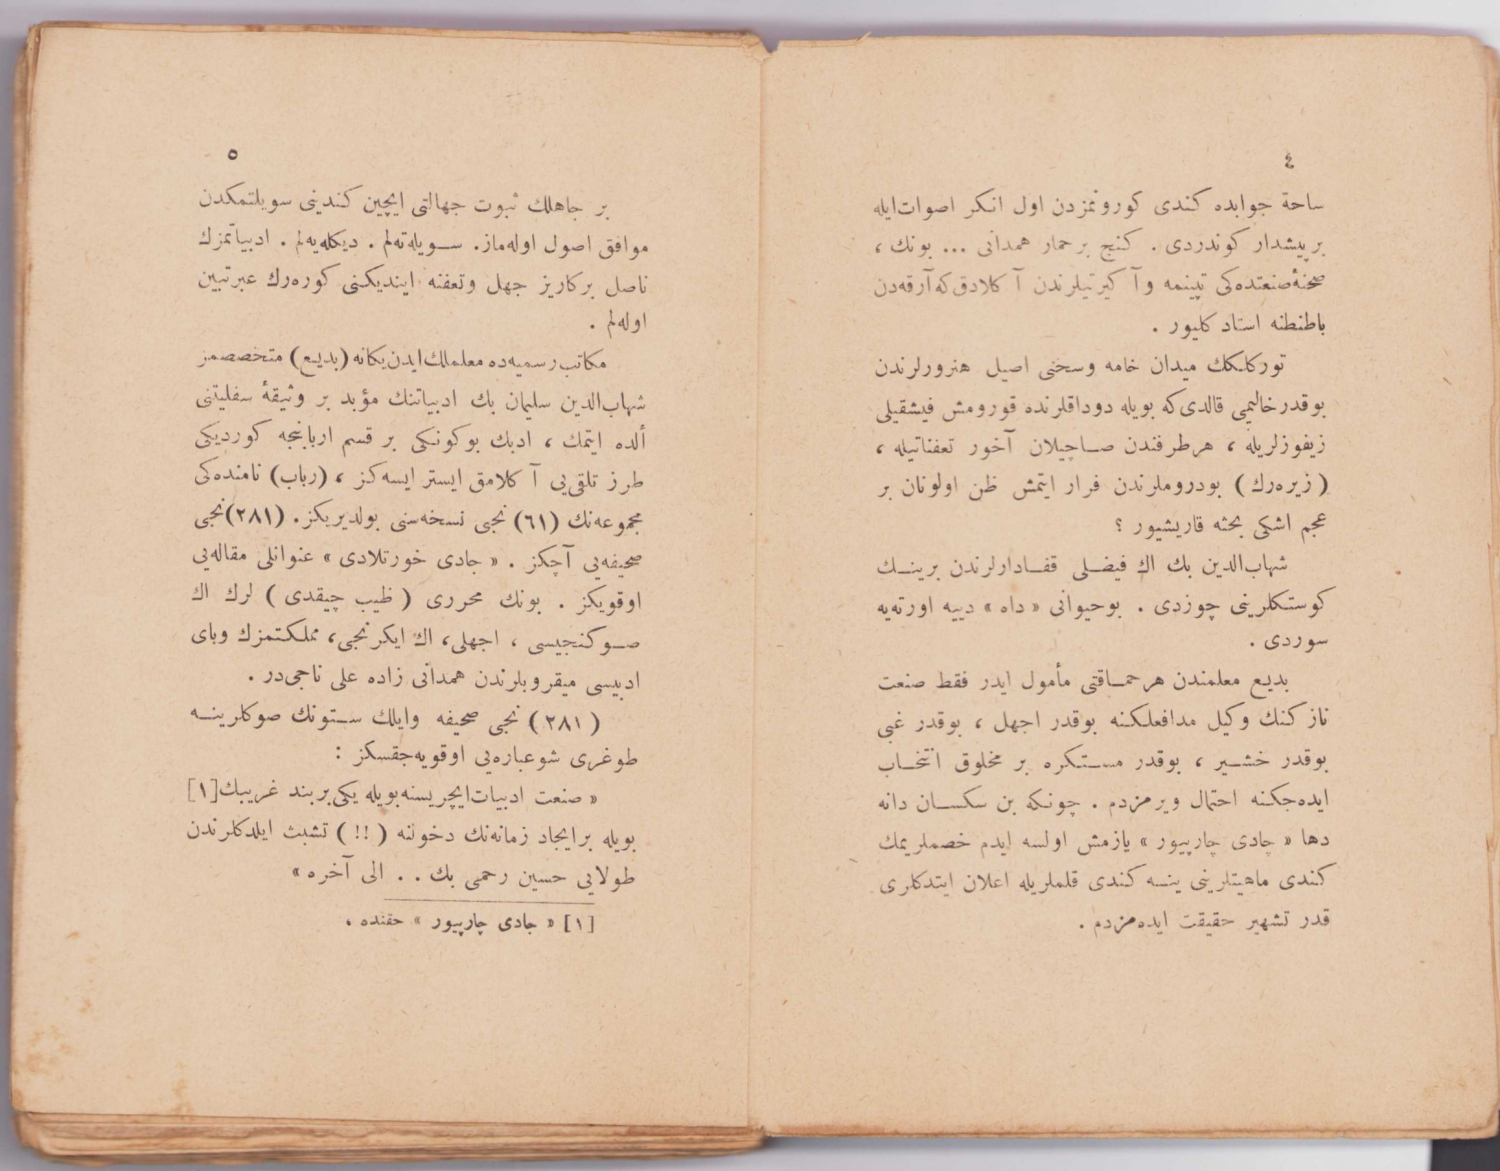 ٤
ساحة جوابده كندی كورونمزدن اول انكر اصوات ایله
بر پیشدار كوندردی . كنج بر حمار همدانی ... بونك ،
صحنهٔ صنعتده‌كی تپینمه و آ كیرتیلرندن آ كلادق كه آرقه‌دن
باطنطنه استاد كلیور .
توركلكك میدان خامه وسخنی اصیل هنرورلرندن
بوقدر خالیمی قالدی كه بویله دوداقلرنده قورومش فیشقیلی
زیفوزلریله ، هر طرفندن صاچیلان آخور تعفناتیله ،
( زیره‌رك ) بودروملرندن فرار ایتمش ظن اولونان بر
عجم اشكی بحثه قاریشیور ؟
شهاب‌الدین بك اك فیضلی قفادارلرندن برینك
كوستكلرینی چوزدی . بوحیوانی « داه » دییه اورته‌یه
سوردی .
بدیع معلمندن هر حماقتی مأمول ایدر فقط صنعت
نازكنك وكیل مدافعلكنه بوقدر اجهل ، بوقدر غبی
بوقدر خشیر ، بوقدر مستكره بر مخلوق انتخاب
ایده‌جكنه احتمال ویرمزدم . چونكه بن سكسان دانه
دها « جادی چارپیور » یازمش اولسه ایدم خصملریمك
كندی ماهیتلرینی ینه كندی قلملریله اعلان ایتدكلری
قدر تشهیر حقیقت ایده‌مزدم .
٥
بر جاهلك ثبوت جهالتی ایچین كندینی سویلتمكدن
موافق اصول اوله‌ماز. سویله‌ته‌لم . دیكله‌یه‌لم . ادبیاتمزك
ناصل بر كاریز جهل وتعفنه ایندیكنی كوره‌رك عبرتبین
اوله‌لم .
مكاتب رسمیه‌ده معلملك ایدن یكانه (بدیع) متخصصمز
شهاب‌الدین سلیمان بك ادبیاتنك مؤبد بر وثیقهٔ سفلیتنی
ألده ایتمك ، ادبك بوكونكی بر قسم اربابنجه كوردیكی
طرز تلقی‌یی آ كلامق ایستر ایسه‌كز ، (رباب) نامنده‌كی
مجموعه‌نك (٦١) نجی نسخه‌سنی بولدیریكز. (٢٨١) نجی
صحیفه‌یی آچكز . « جادی خورتلادی » عنوانلی مقاله‌یی
اوقویكز . بونك محرری ( ظیب چیقدی ) لرك اك
صوكنجیسی ، اجهلی، اك ایكرنجی، مملكتمزك وبای
ادبیسی میقروبلرندن همدانی زاده علی ناجی‌در .
( ٢٨١ ) نجی صحیفه وایلك ستونك صوكلرینه
طوغری شو عباره‌یی اوقویه‌جقسكز :
« صنعت ادبیات ایچریسنه بویله یكی بر بند غریبك [١]
بویله بر ایجاد زمانه‌نك دخولنه ( !! ) تشبث ایلدكلرندن
طولایی حسین رحمی بك . . الی آخره »
[١] « جادی چارپیور » حقنده .